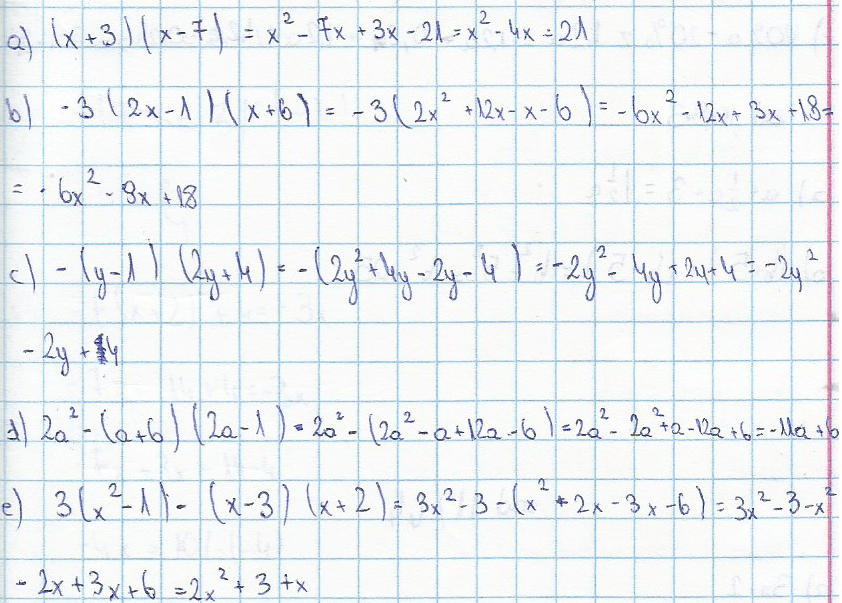 a) (x+3)(x-7) = x² - 7x + 3x - 21 = x² - 4x = 21
b) -3(2x-1)(x+6) = -3(2x² + 12x - x - 6) = -6x² - 12x + 3x + 18 =
= -6x² - 9x + 18
c) -(y-1)(2y+4) = -(2y² + 4y - 2y - 4) = -2y² - 4y + 2y + 4 = -2y²
- 2y + 4
d) 2a² - (a+6)(2a-1) = 2a² - (2a² - a + 12a - 6) = 2a² - 2a² + a - 12a + 6 = -11a + 6
e) 3(x²-1) - (x-3)(x+2) = 3x² - 3 - (x² + 2x - 3x - 6) = 3x² - 3 - x²
- 2x + 3x + 6 = 2x² + 3 + x